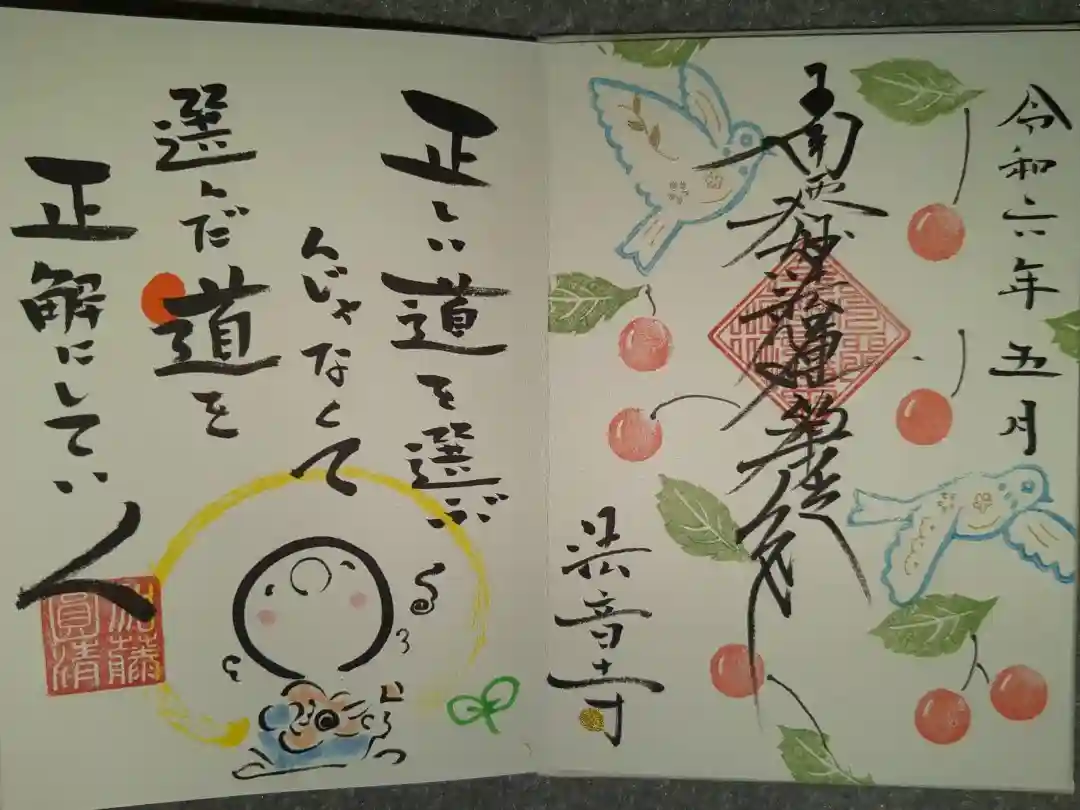 令和六年五月
南無妙法蓮華経
法音寺
正しい道を選ぶ
んじゃなくて
選んだ道を
正解にしていく
加藤
圓清